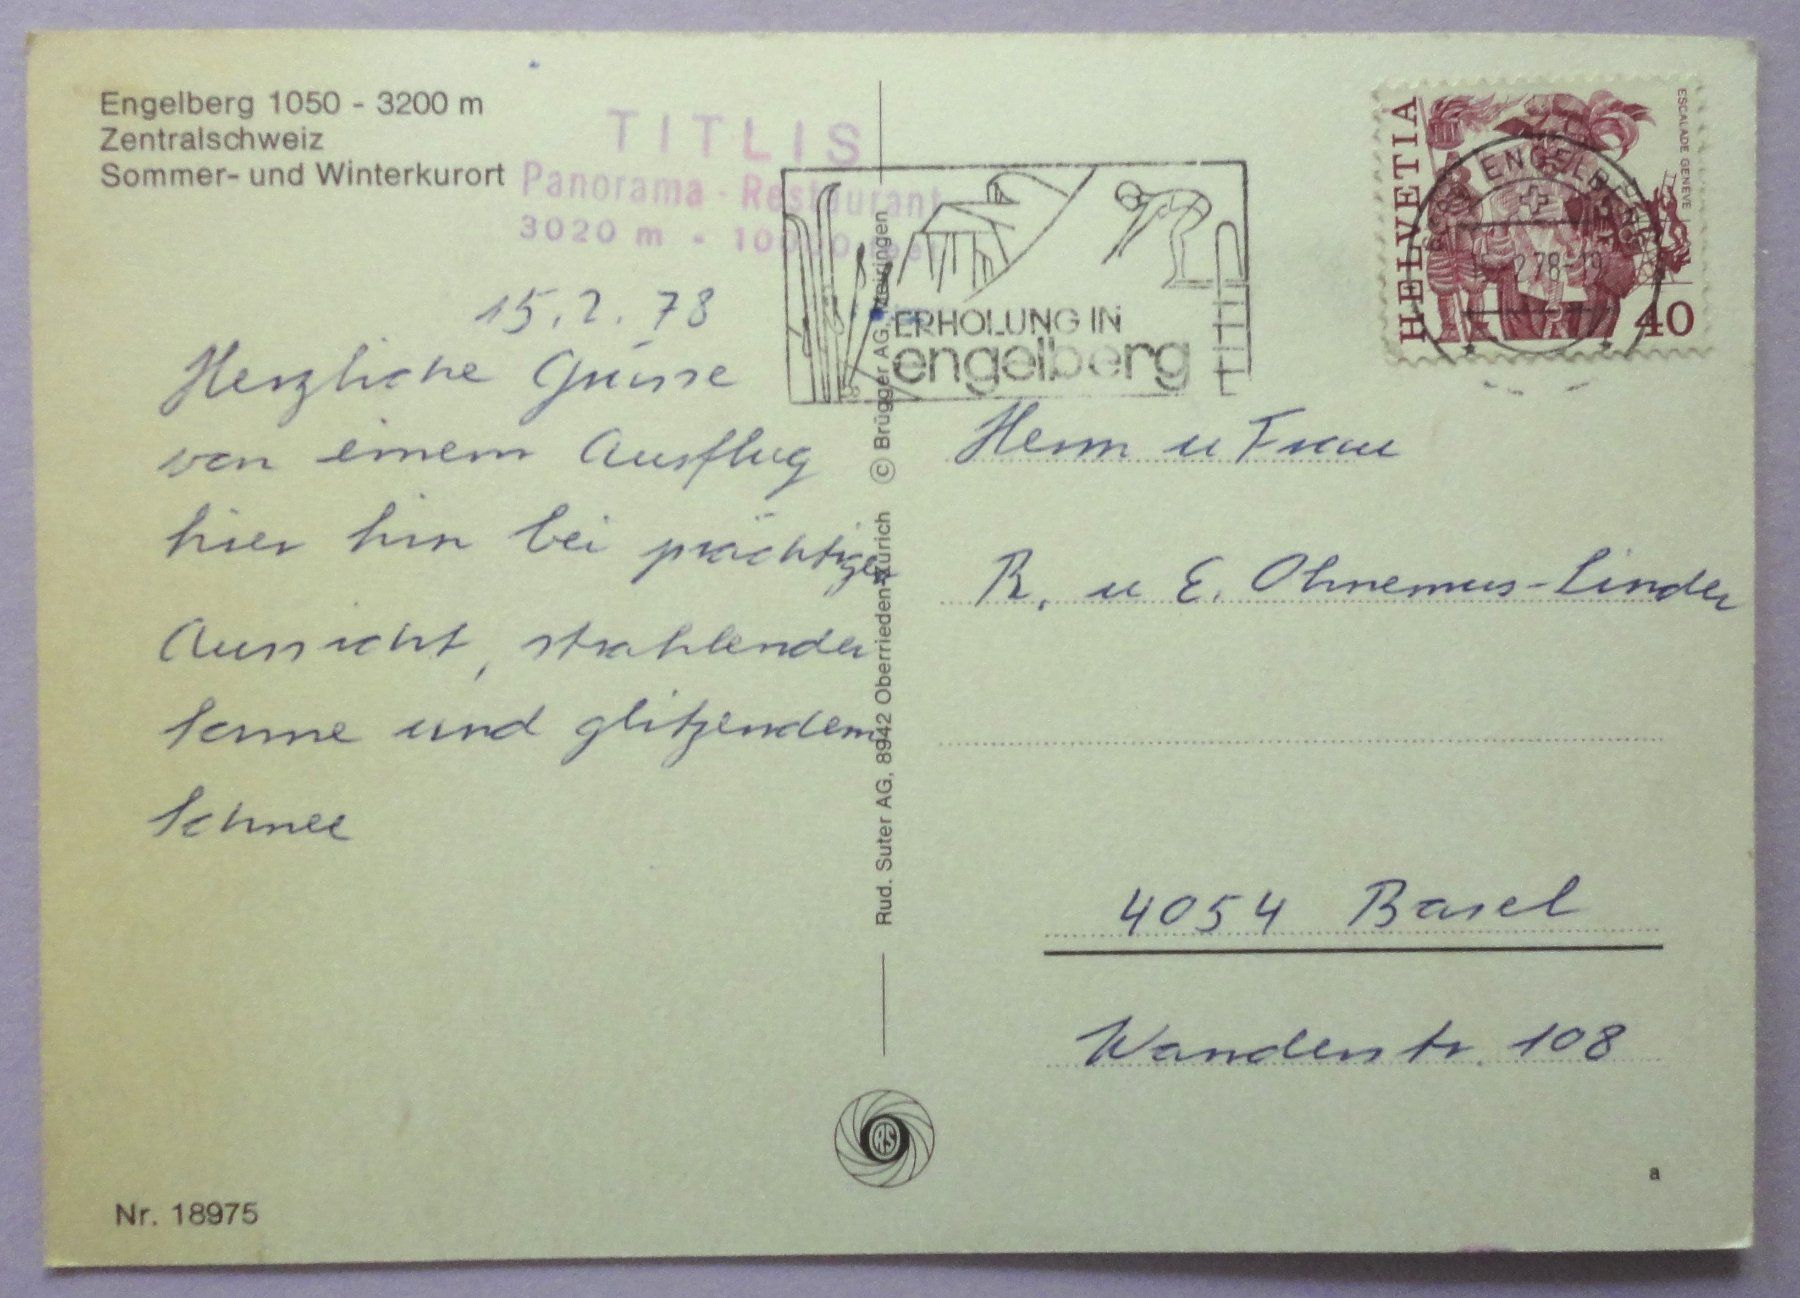 Engelberg 1050 - 3200 m
Zentralschweiz
Sommer- und Winterkurort
TITLIS
Panorama - Restaurant
3020 m
15.2.78
Herzliche Grüsse
von einem Ausflug
hier hin bei prächtiger
Aussicht, strahlender
Sonne und glitzendem
Schnee
Nr. 18975
Rud. Suter AG, 8942 Oberrieden-Zürich © Brügger AG, Meiringen
RS
ERHOLUNG IN
engelberg
HELVETIA
ESCALADE GENÈVE
40
ENGELBERG
2.78-19
Herrn u Frau
R. u E. Ohnemus-Linder
4054 Basel
Wanderstr. 108
a